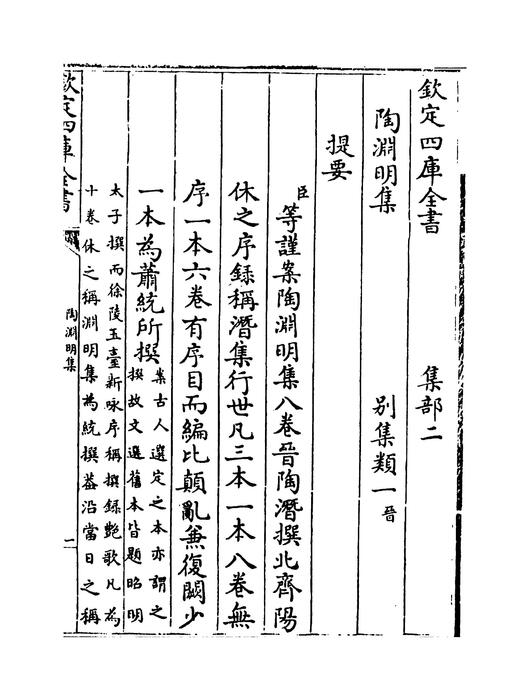 欽定四庫全書 集部二
陶淵明集 別集類一晉
提要
臣等謹案陶淵明集八卷晉陶潛撰北齊陽
休之序録稱潛集行世凡三本一本八卷無
序一本六卷有序目而編比顛亂兼復闕少
一本為蕭統所撰案古人選定之本亦謂之
撰故文選舊本皆題昭明
太子撰而徐陵玉臺新咏序稱撰録艶歌凡為
十卷休之稱淵明集為統撰葢沿當日之稱
欽定四庫全書
陶淵明集
一